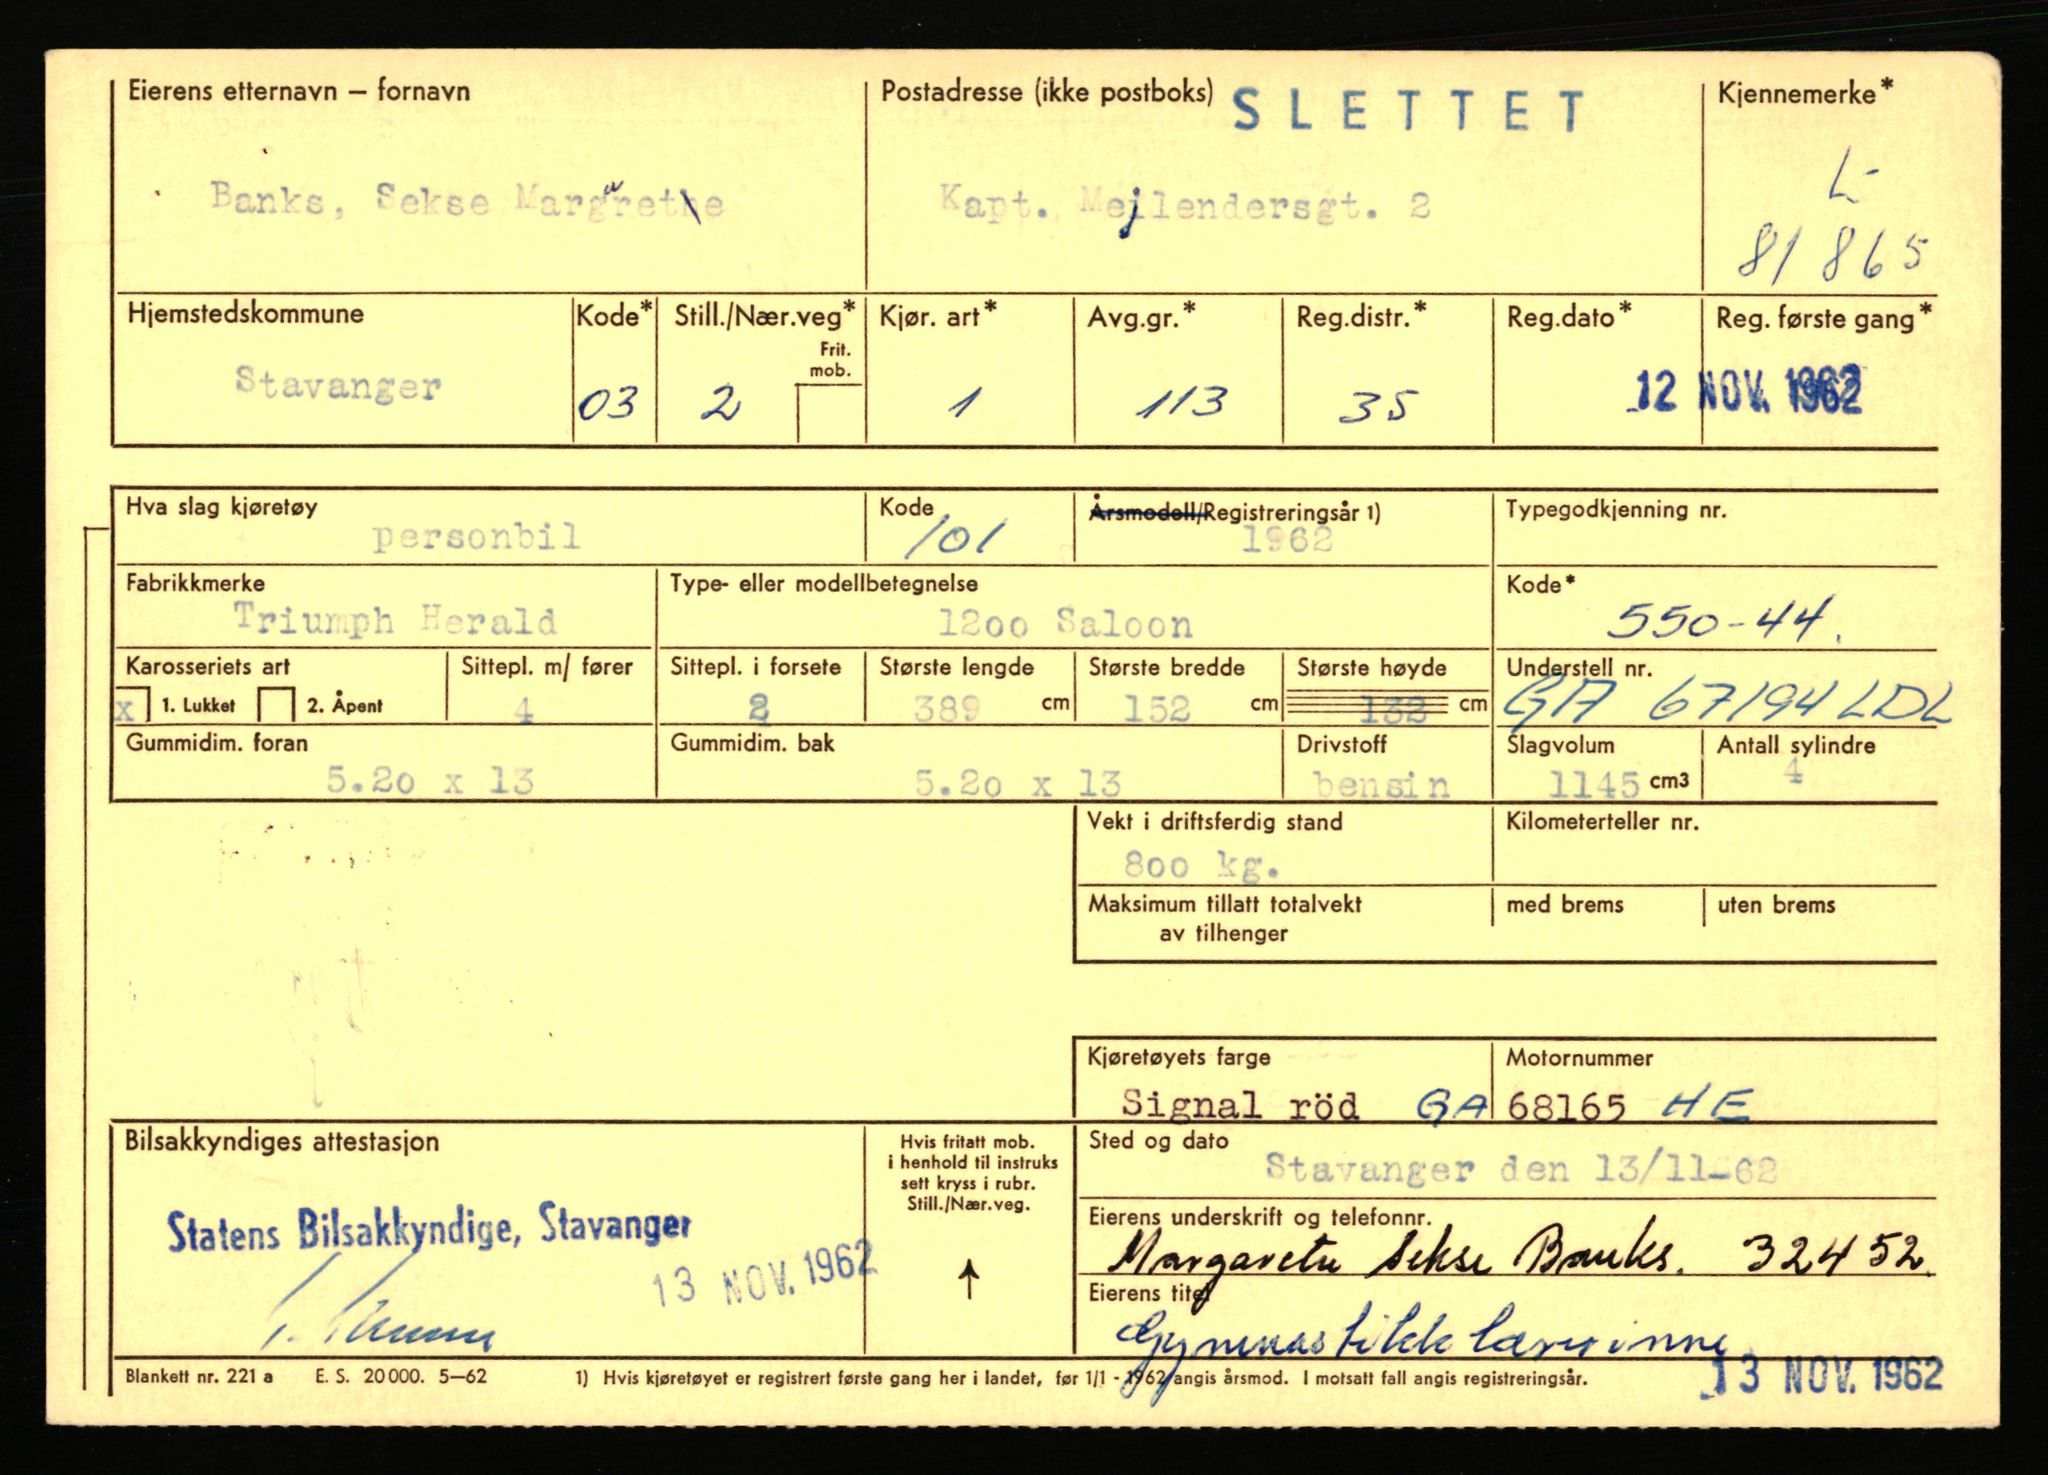 Eierens etternavn – fornavn
Postadresse (ikke postboks)
SLETTET
Kjennemerke*
Banks, Sekse Margarete
Kapt. Mejlendersgt. 2
L-
81865
Hjemstedskommune
Kode*
Still./Nær.veg*
Frit.
mob.
Kjør. art*
Avg.gr.*
Reg.distr.*
Reg.dato*
Reg. første gang*
Stavanger
03
2
1
113
35
12 NOV. 1962
Hva slag kjøretøy
Kode
Årsmodell/Registreringsår 1)
Typegodkjenning nr.
personbil
101
1962
Fabrikkmerke
Type- eller modellbetegnelse
Kode*
Triumph Herald
1200 Saloon
550-44.
Karosseriets art
Sittepl. m/ fører
Sittepl. i forsete
Største lengde
Største bredde
Største høyde
Understell nr.
x 1. Lukket
2. Åpent
4
2
389 cm
152 cm
132 cm
GA 67194 LDL
Gummidim. foran
Gummidim. bak
Drivstoff
Slagvolum
Antall sylindre
5.20 x 13
5.20 x 13
bensin
1145 cm3
4
Vekt i driftsferdig stand
Kilometerteller nr.
800 kg.
Maksimum tillatt totalvekt
av tilhenger
med brems
uten brems
Kjøretøyets farge
Motornummer
Signal röd
GA 68165 HE
Bilsakkyndiges attestasjon
Hvis fritatt mob.
i henhold til instruks
sett kryss i rubr.
Still./Nær.veg.
Sted og dato
Stavanger den 13/11-62
Statens Bilsakkyndige, Stavanger
13 NOV. 1962
Eierens underskrift og telefonnr.
Margarete Sekse Banks. 32452.
Eierens titel
Gymnastikklærerinne
13 NOV. 1962
Blankett nr. 221 a E. S. 20000. 5–62
1) Hvis kjøretøyet er registrert første gang her i landet, før 1/1 - 1962 angis årsmod. I motsatt fall angis registreringsår.